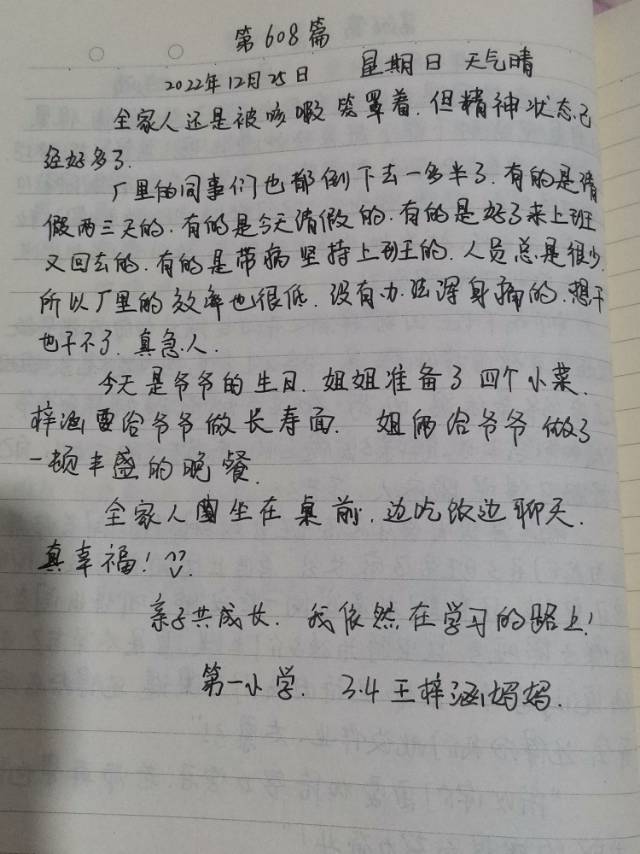 第608篇
2022年12月25日 星期日 天气晴
全家人还是被咳嗽笼罩着.但精神状态已
经好多了.
厂里的同事们也都倒下去一多半了.有的是请
假两三天的.有的是今天请假的.有的是好了来上班
又回去的.有的是带病坚持上班的.人员总是很少.
所以厂里的效率也很低.没有办法浑身痛的.想干
也干不了.真急人.
今天是爷爷的生日.姐姐准备了四个小菜.
梓涵要给爷爷做长寿面. 姐俩给爷爷做了
一顿丰盛的晚餐.
全家人围坐在桌前.边吃饭边聊天.
真幸福!
亲子共成长.我依然在学习的路上!
第一小学. 3.4王梓涵妈妈.